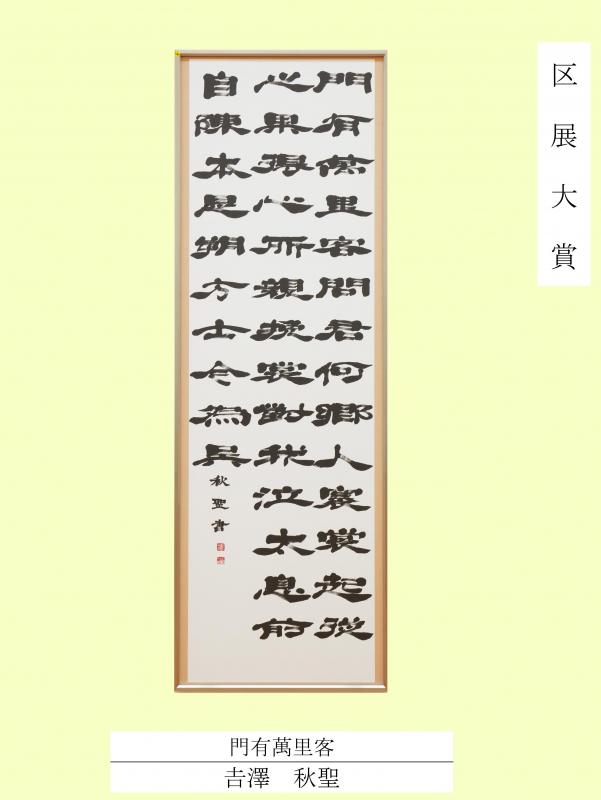 区展大賞
門有萬里客問君何鄉人褰裳起從
之果得心所親挽裳對我泣太息前
自陳本是朔方士今為吳
秋聖書
門有萬里客
吉澤　秋聖